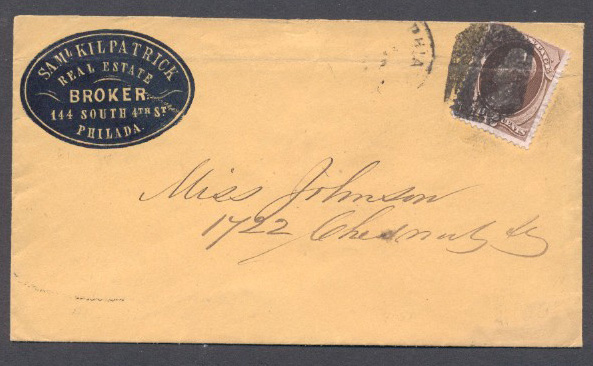 SAML KILPATRICK
REAL ESTATE
BROKER.
144 SOUTH 4TH ST.
PHILADA.
HIA
CENTS
Miss Johnson
1722 Chesnut St